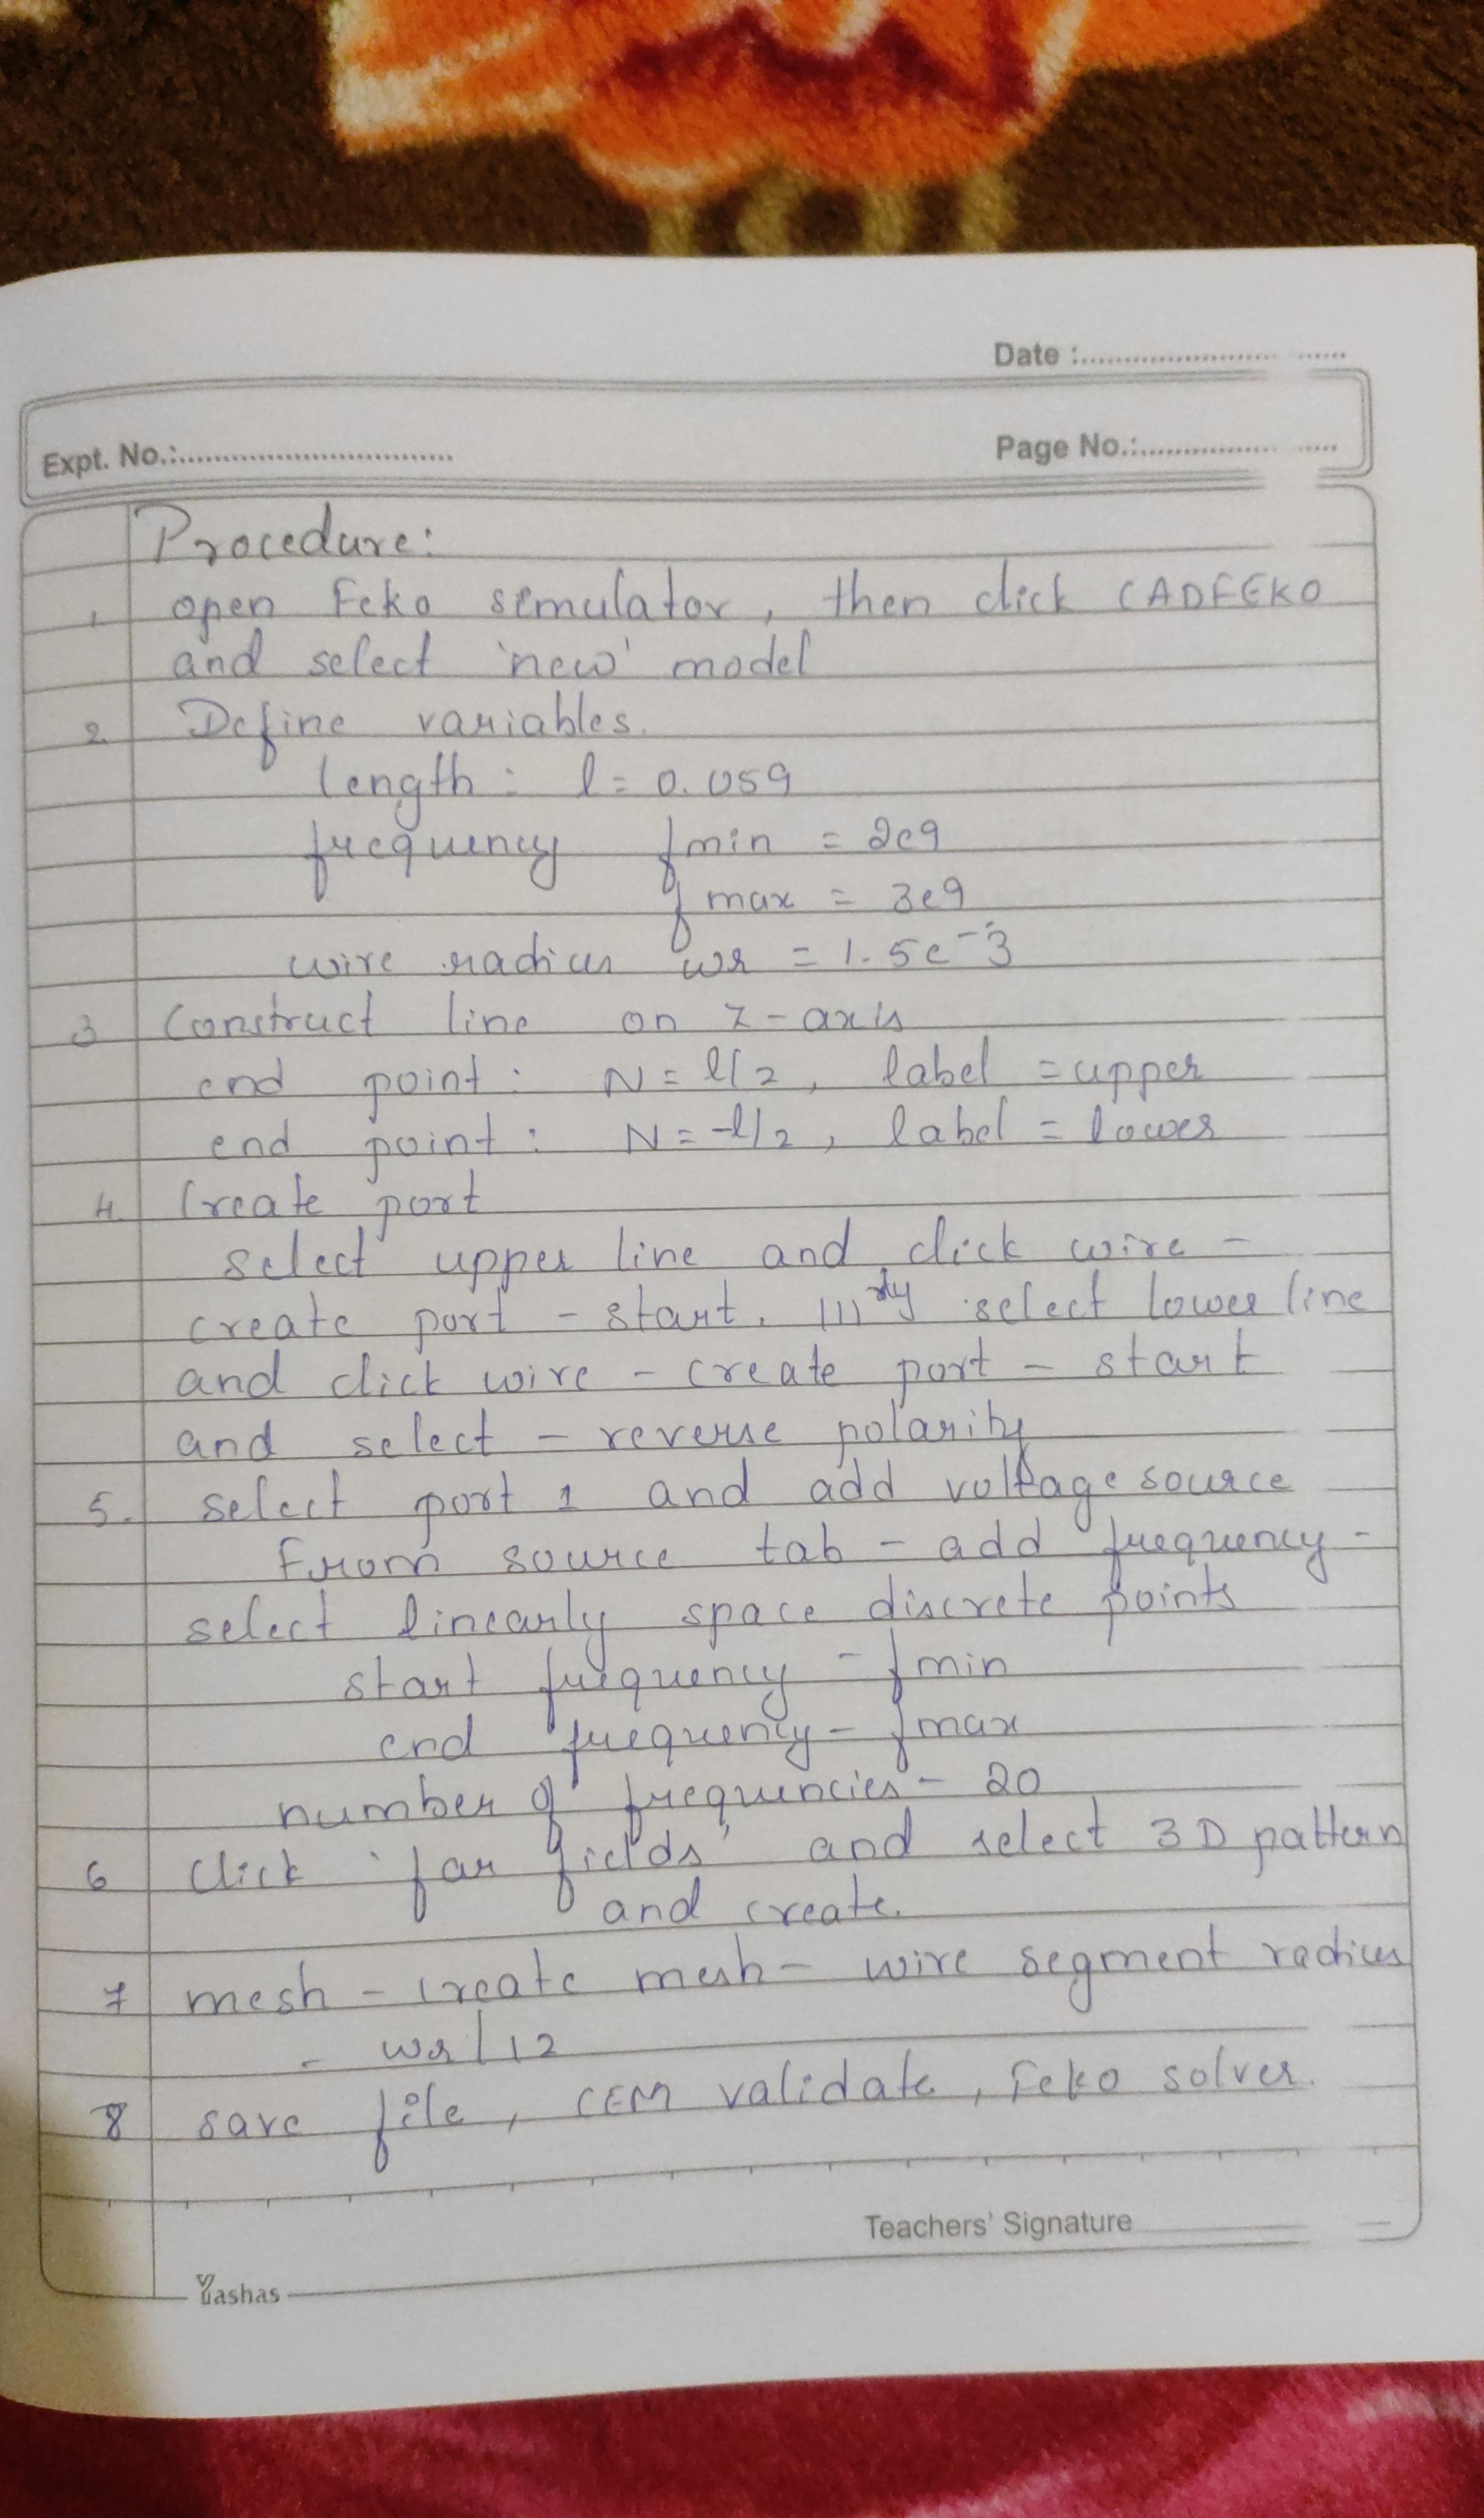 Date :
Expt. No.:
Page No.:
Procedure:
1 open Feko simulator, then click CADFEKO
and select 'new' model
2. Define variables.
length : l = 0.059
frequency fmin = 2e9
fmax = 3e9
wire radius wr = 1.5e-3
3 Construct line on z-axis
end point : N = l/2, label = upper
end point : N = -l/2, label = lower
4. Create port
select upper line and click wire -
create port - start. |||rly select lower line
and click wire - create port - start
and select - reverse polarity
5. select port 1 and add voltage source
From source tab - add frequency -
select linearly space discrete points
start frequency - fmin
end frequency - fmax
number of frequencies - 20
6 Click 'far fields' and select 3D pattern
and create.
7 mesh - create mesh - wire segment radius
- wr/12
8 save file, CEM validate, Feko solver.
Teachers' Signature
Yashas